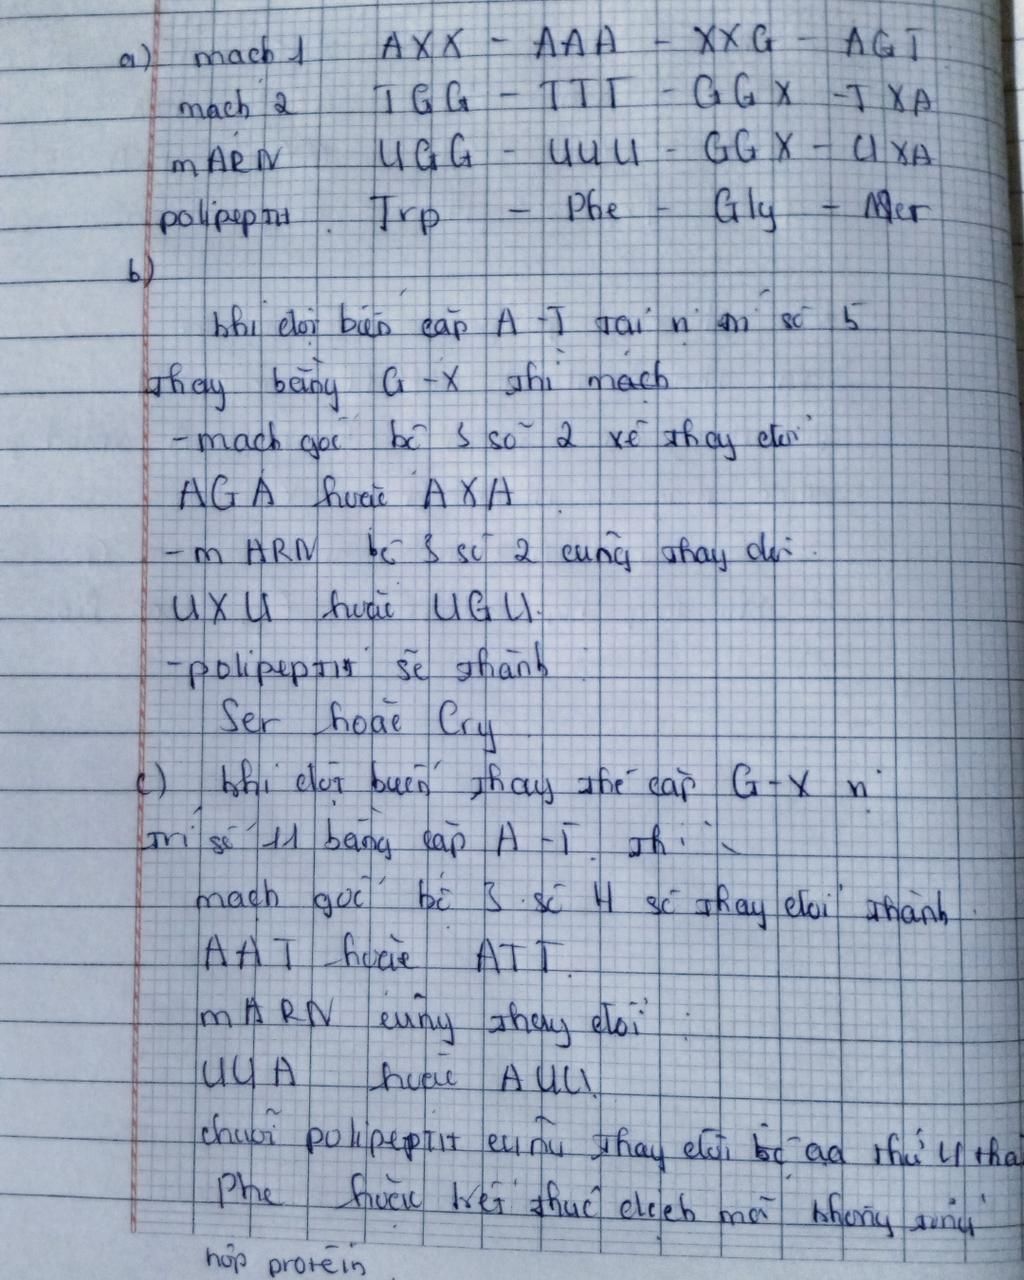 a) mạch 1 AXX - AAA - XXG - AGT
mạch 2 TGG - TTT - GGX - TXA
mARN UGG - UUU - GGX - UXA
polipeptit Trp - Phe - Gly - Ser
b)
khi đột biến cặp A-T tại số 5
thay bằng G-X thì mạch
- mạch gốc bộ 3 số 2 sẽ thay đổi
AGA hoặc AXA
- mARN bộ 3 số 2 cũng thay đổi
UXU hoặc UGU.
- polipeptit sẽ thành
Ser hoặc Cry
c) khi đột biến thay thế cặp G-X
trí số 11 bằng cặp A-T. thì
mạch gốc bộ 3 số 4 sẽ thay đổi thành
AAT hoặc ATT.
mARN cũng thay đổi :
UUA hoặc AUU
chuỗi polipeptit cũng thay đổi aa thứ 4
Phe hoặc kết thúc không
hợp protein